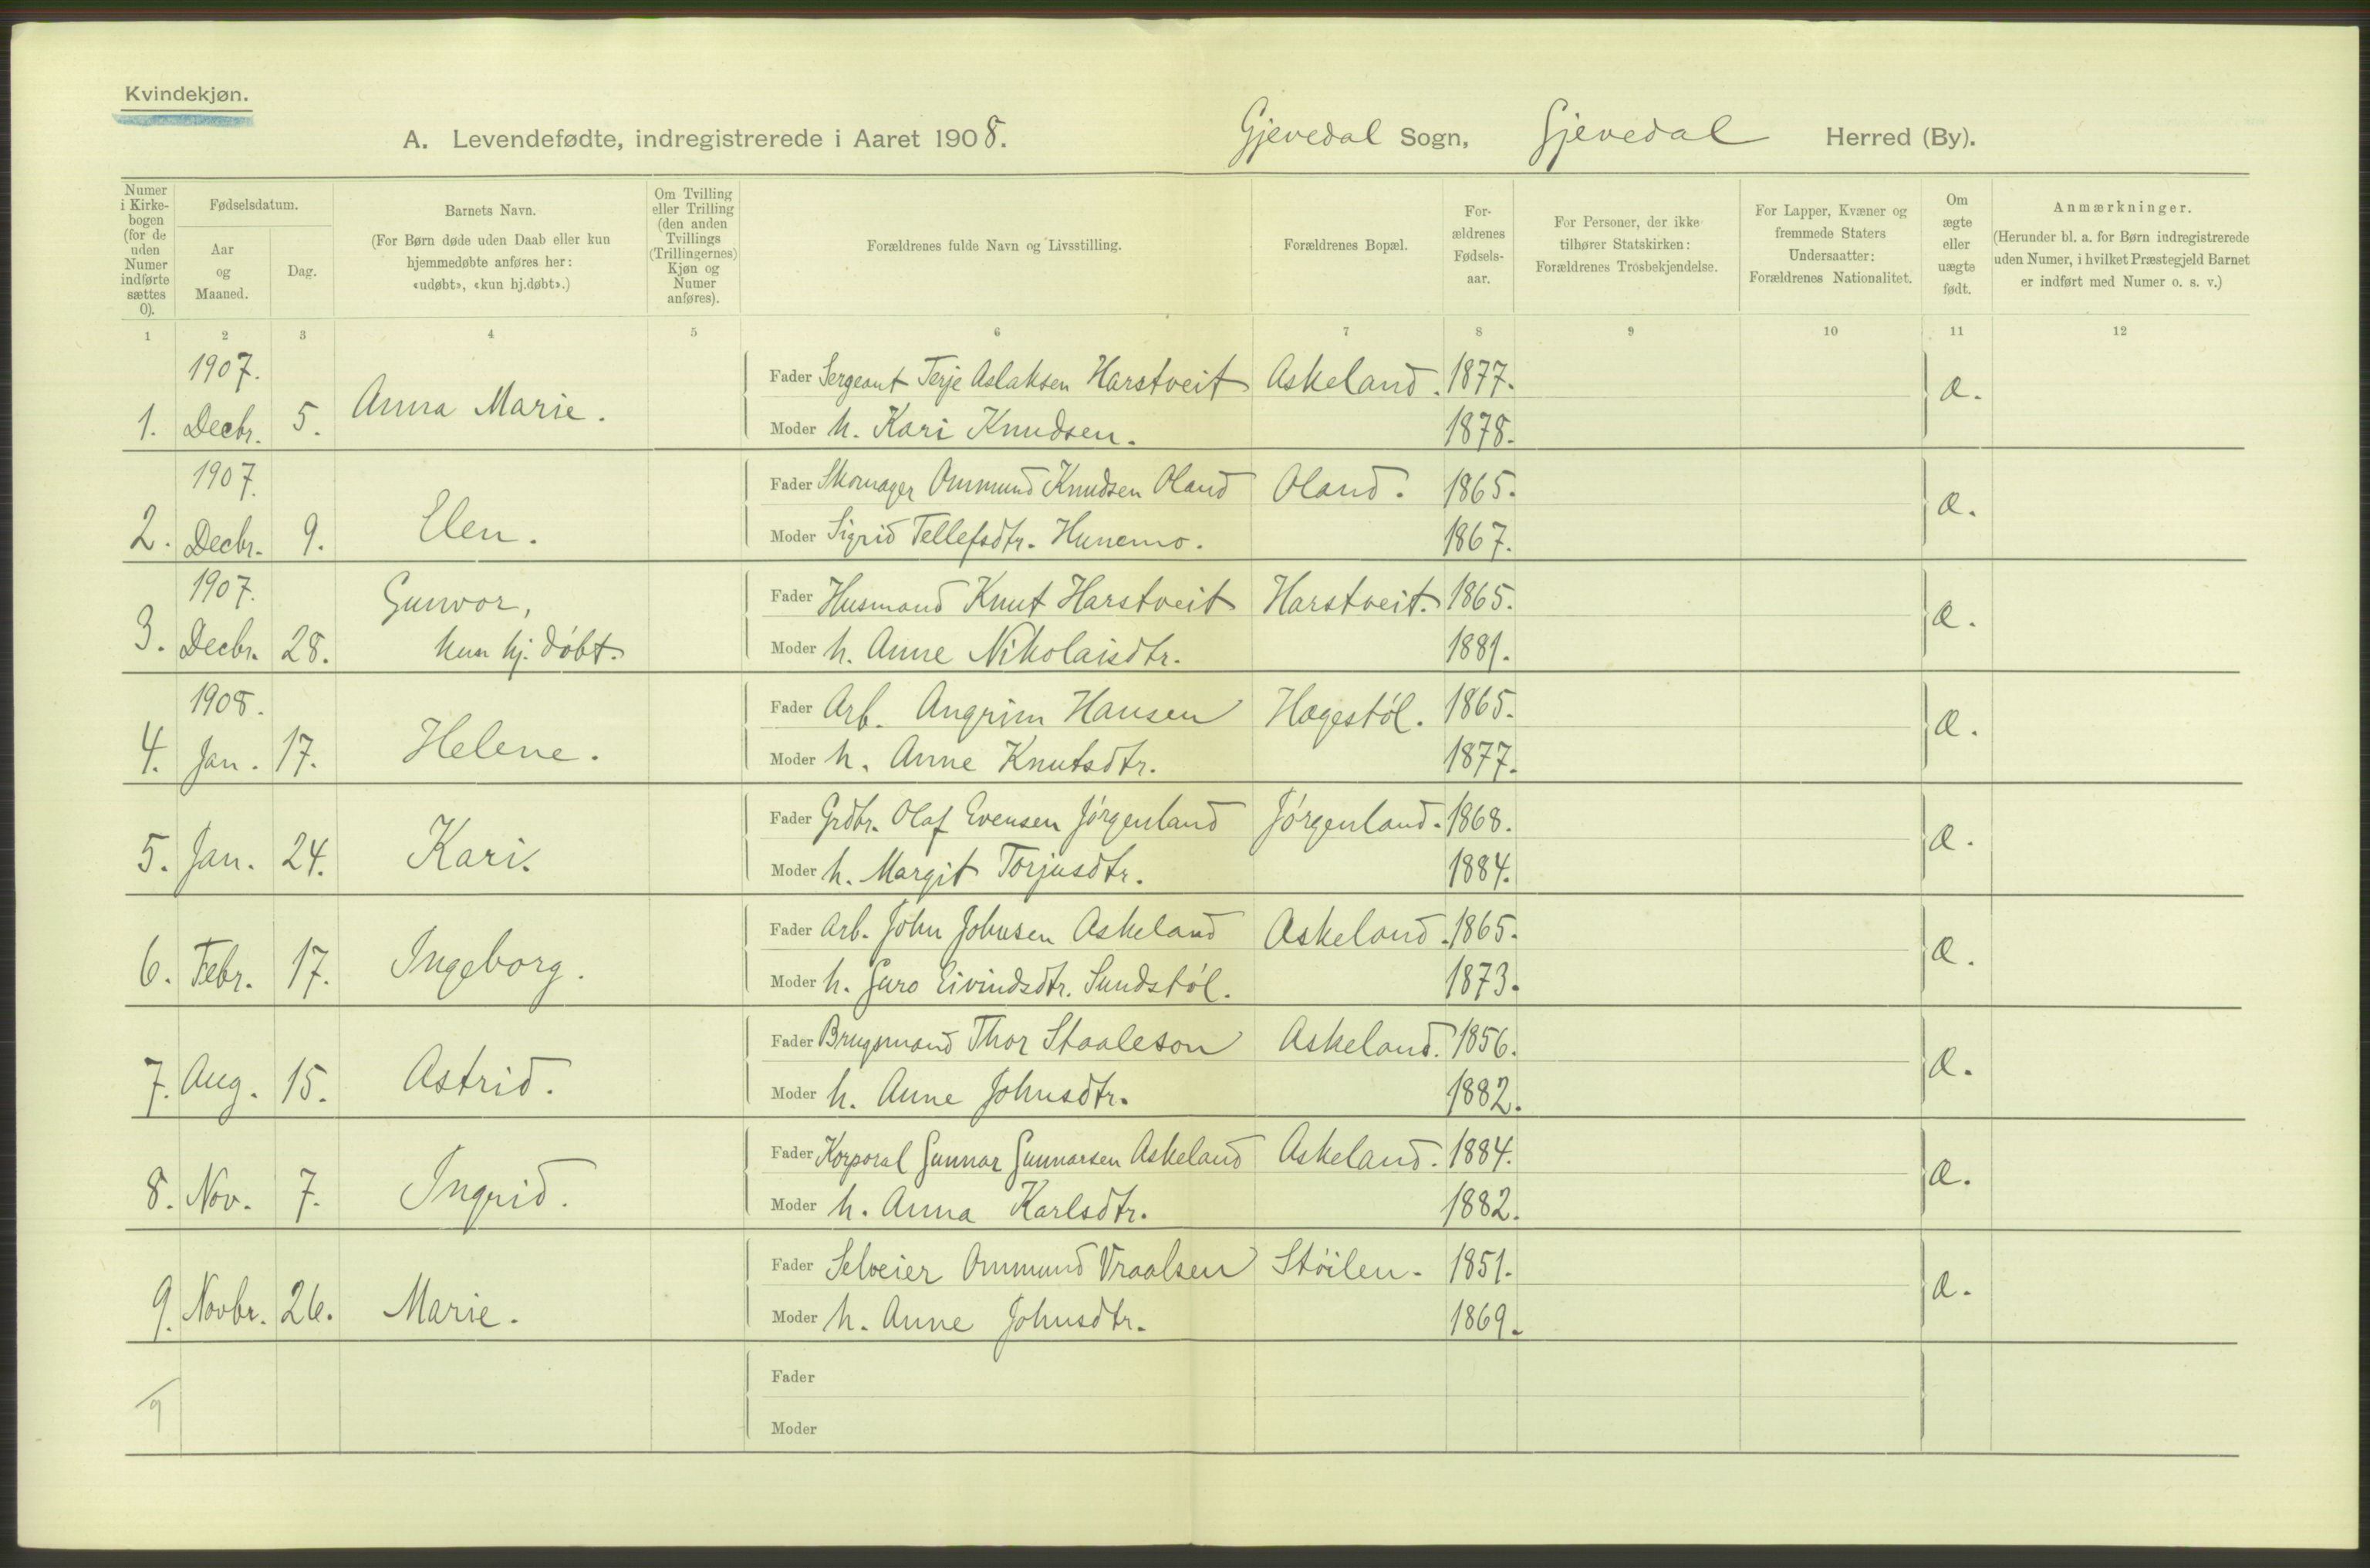 Kvindekjøn.
A. Levendefødte, indregistrerede i Aaret 1908. Gjevedal Sogn, Gjevedal Herred (By).
Numer i Kirkebogen (for de uden Numer indførte sættes 0).
Fødselsdatum.
Aar og Maaned.
Dag.
Barnets Navn.
(For Børn døde uden Daab eller kun hjemmedøbte anføres her: «udøbt», «kun hj.døbt».)
Om Tvilling eller Trilling (den anden Tvillings (Trillingernes) Kjøn og Numer anføres).
Forældrenes fulde Navn og Livsstilling.
Forældrenes Bopæl.
Forældrenes Fødselsaar.
For Personer, der ikke tilhører Statskirken: Forældrenes Trosbekjendelse.
For Lapper, Kvæner og fremmede Staters Undersaatter: Forældrenes Nationalitet.
Om ægte eller uægte født.
Anmærkninger.
(Herunder bl. a. for Børn indregistrerede uden Numer, i hvilket Præstegjeld Barnet er indført med Numer o. s. v.)
1 2 3 4 5 6 7 8 9 10 11 12
1907.
Fader Sergeant Terje Aslaksen Harstveit Askeland. 1877.
1. Decbr. 5. Anna Marie. æ.
Moder h. Kari Knudsen. 1878.
1907.
Fader Skomager Ommund Knudsen Oland Oland. 1865.
2. Decbr. 9. Elen. æ.
Moder Sigrid Tellefsdtr. Hunemo. 1867.
1907.
Gunvor,
Fader Husmand Knut Harstveit Harstveit. 1865.
3. Decbr. 28. kun hj. døbt. æ.
Moder h. Anne Nikolaisdtr. 1881.
1908.
Fader Arb. Angrim Hansen Hægestøl. 1865.
4. Jan. 17. Helene. æ.
Moder h. Anne Knutsdtr. 1877.
Fader Grdbr. Olaf Evensen Jørgenland Jørgenland. 1868.
5. Jan. 24. Kari. æ.
Moder h. Margit Torjusdtr. 1884.
Fader Arb. John Johnsen Askeland Askeland. 1865.
6. Febr. 17. Ingeborg. æ.
Moder h. Guro Eivindsdtr. Sundstøl. 1873.
Fader Brugsmand Thor Staaleson Askeland. 1856.
7. Aug. 15. Astrid. æ.
Moder h. Anne Johnsdtr. 1882.
Fader Korporal Gunnar Gunnarsen Askeland Askeland. 1884.
8. Nov. 7. Ingrid. æ.
Moder h. Anna Karlsdtr. 1882.
Fader Selveier Ommund Vraalsen Støilen. 1851.
9. Novbr. 26. Marie. æ.
Moder h. Anne Johnsdtr. 1869.
Fader
9
Moder